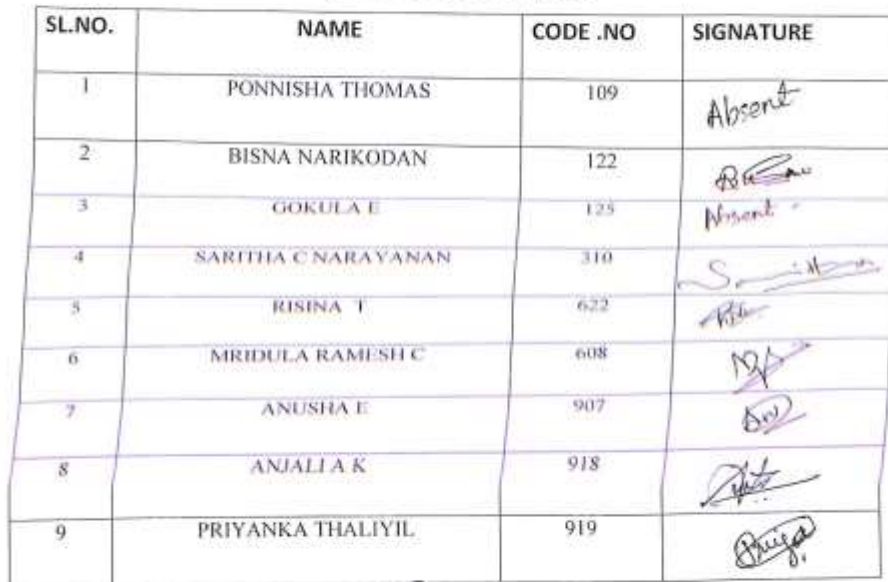 SL.NO. NAME CODE .NO SIGNATURE
1 PONNISHA THOMAS 109 Absent
2 BISNA NARIKODAN 122
3 GOKULA E 125 Absent
4 SARITHA C NARAYANAN 310
5 RISINA T 622
6 MRIDULA RAMESH C 608
7 ANUSHA E 907
8 ANJALI A K 918
9 PRIYANKA THALIYIL 919 Priya